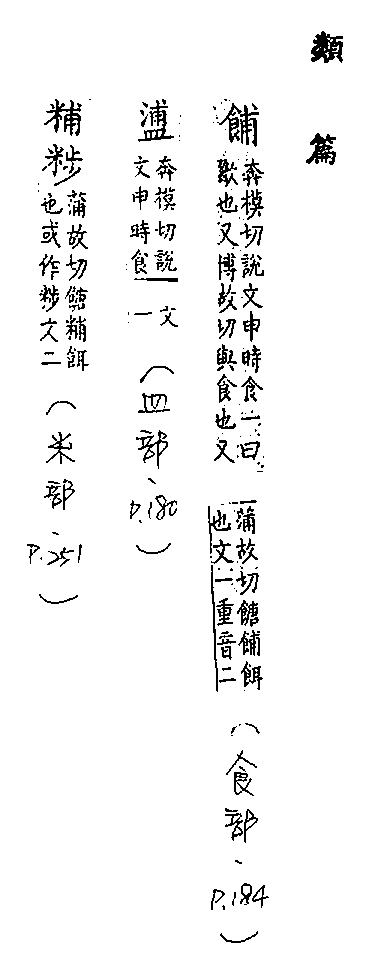 類篇
餔 奔模切說文申時食一曰
歠也又博故切與食也又
蒲故切餹餔餌
也文一重音二
(食部、P.184)
𥂈 奔模切說
文申時食
文
一
(皿部、P.180)
䊇𥹴 蒲故切餹䊇餌
也或作𥹴文二
(米部、P.251)